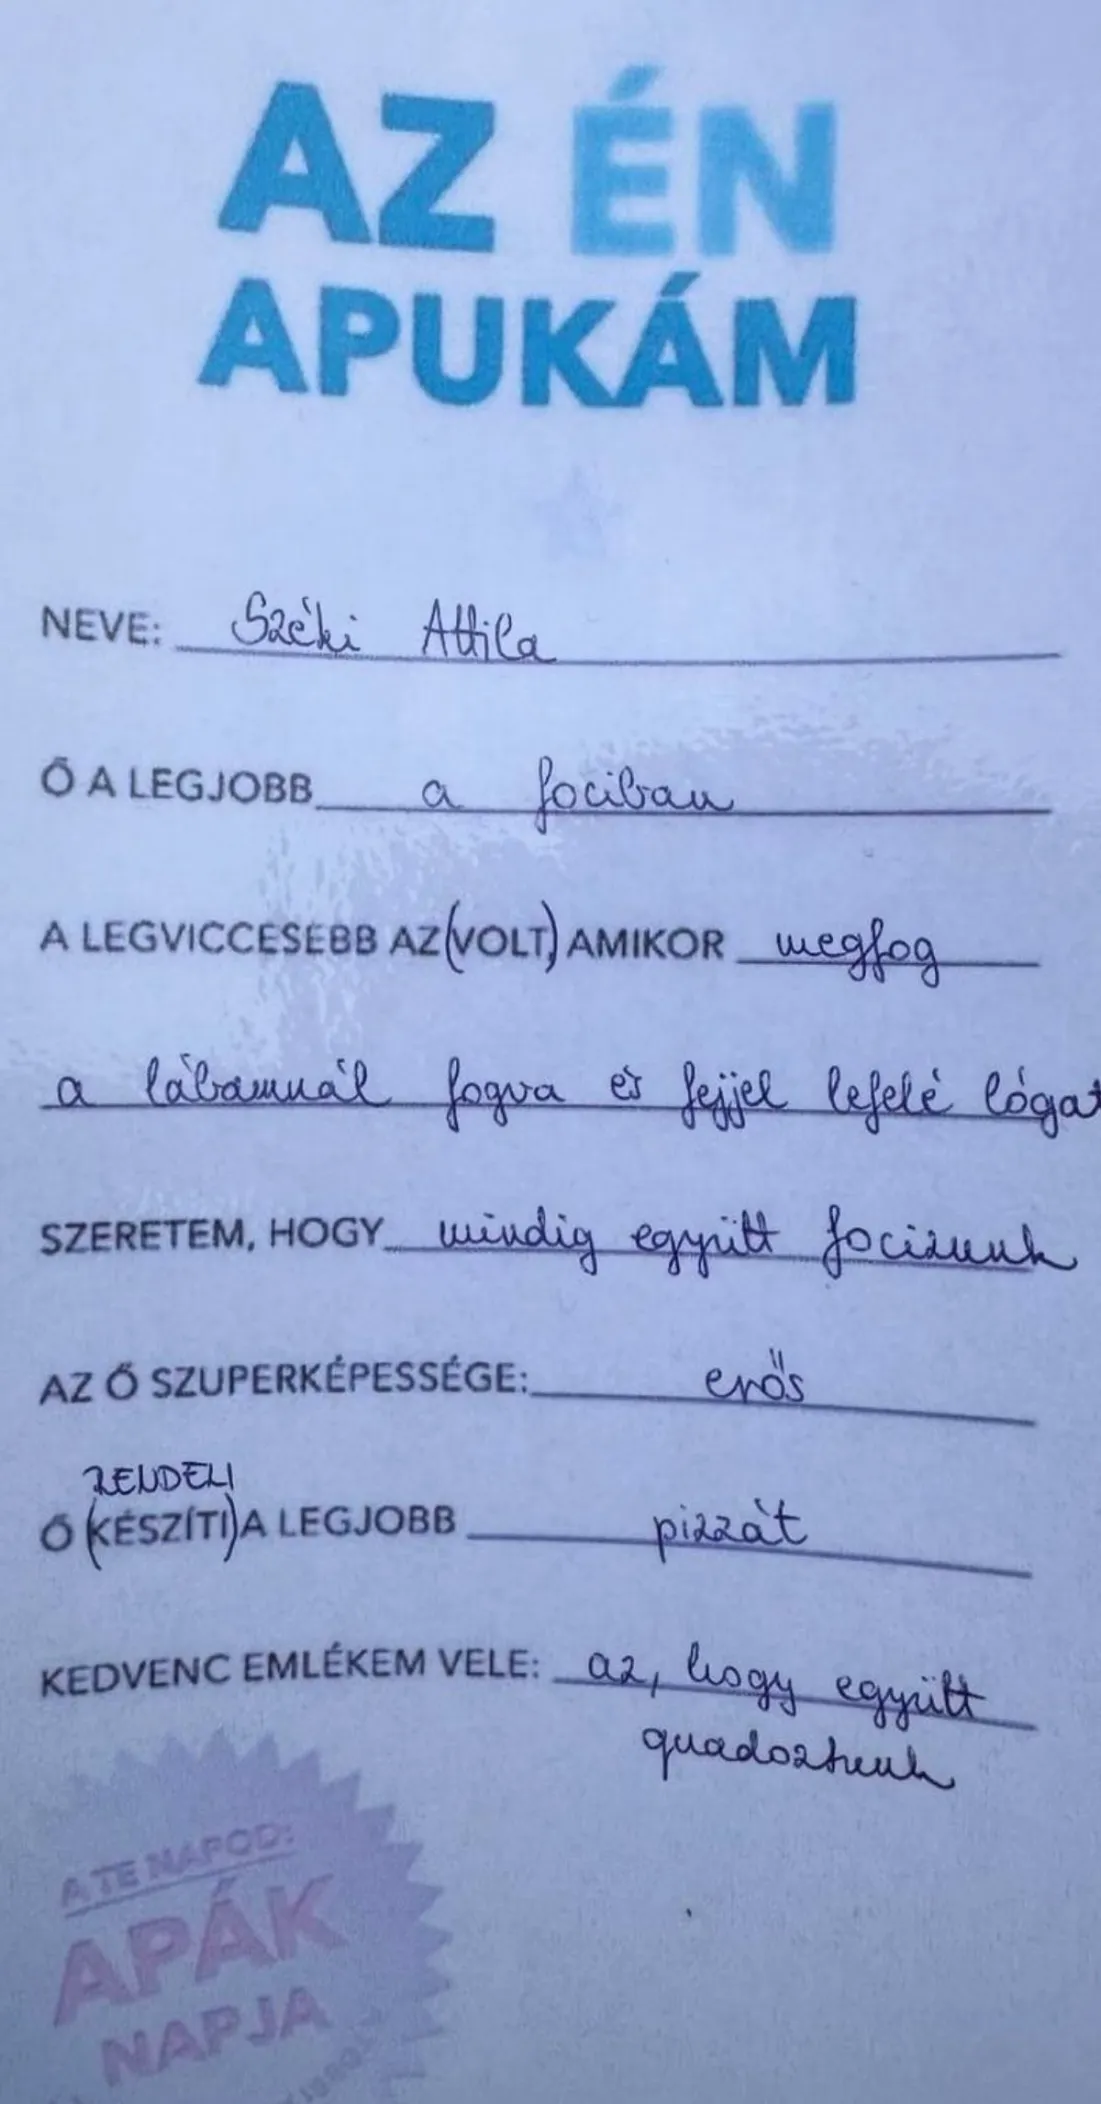 AZ ÉN
APUKÁM
NEVE: Széki Attila
Ő A LEGJOBB a fociban
A LEGVICCESEBB AZ (VOLT,) AMIKOR megfog
a lábamnál fogva és fejjel lefelé lógat
SZERETEM, HOGY mindig együtt focizunk
AZ Ő SZUPERKÉPESSÉGE: erős
RENDELI
Ő (KÉSZÍTI) A LEGJOBB pizzát
KEDVENC EMLÉKEM VELE: az, hogy együtt
quadoztunk
A TE NAPOD:
APÁK
NAPJA